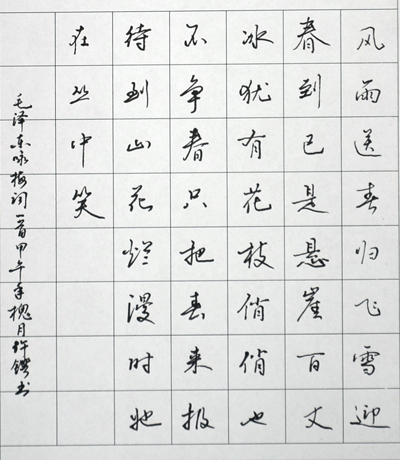 风雨送春归飞雪迎
春到已是悬崖百丈
冰犹有花枝俏俏也
不争春只把春来报
待到山花烂漫时她
在丛中笑
毛泽东咏梅词一首甲午年槐月许书